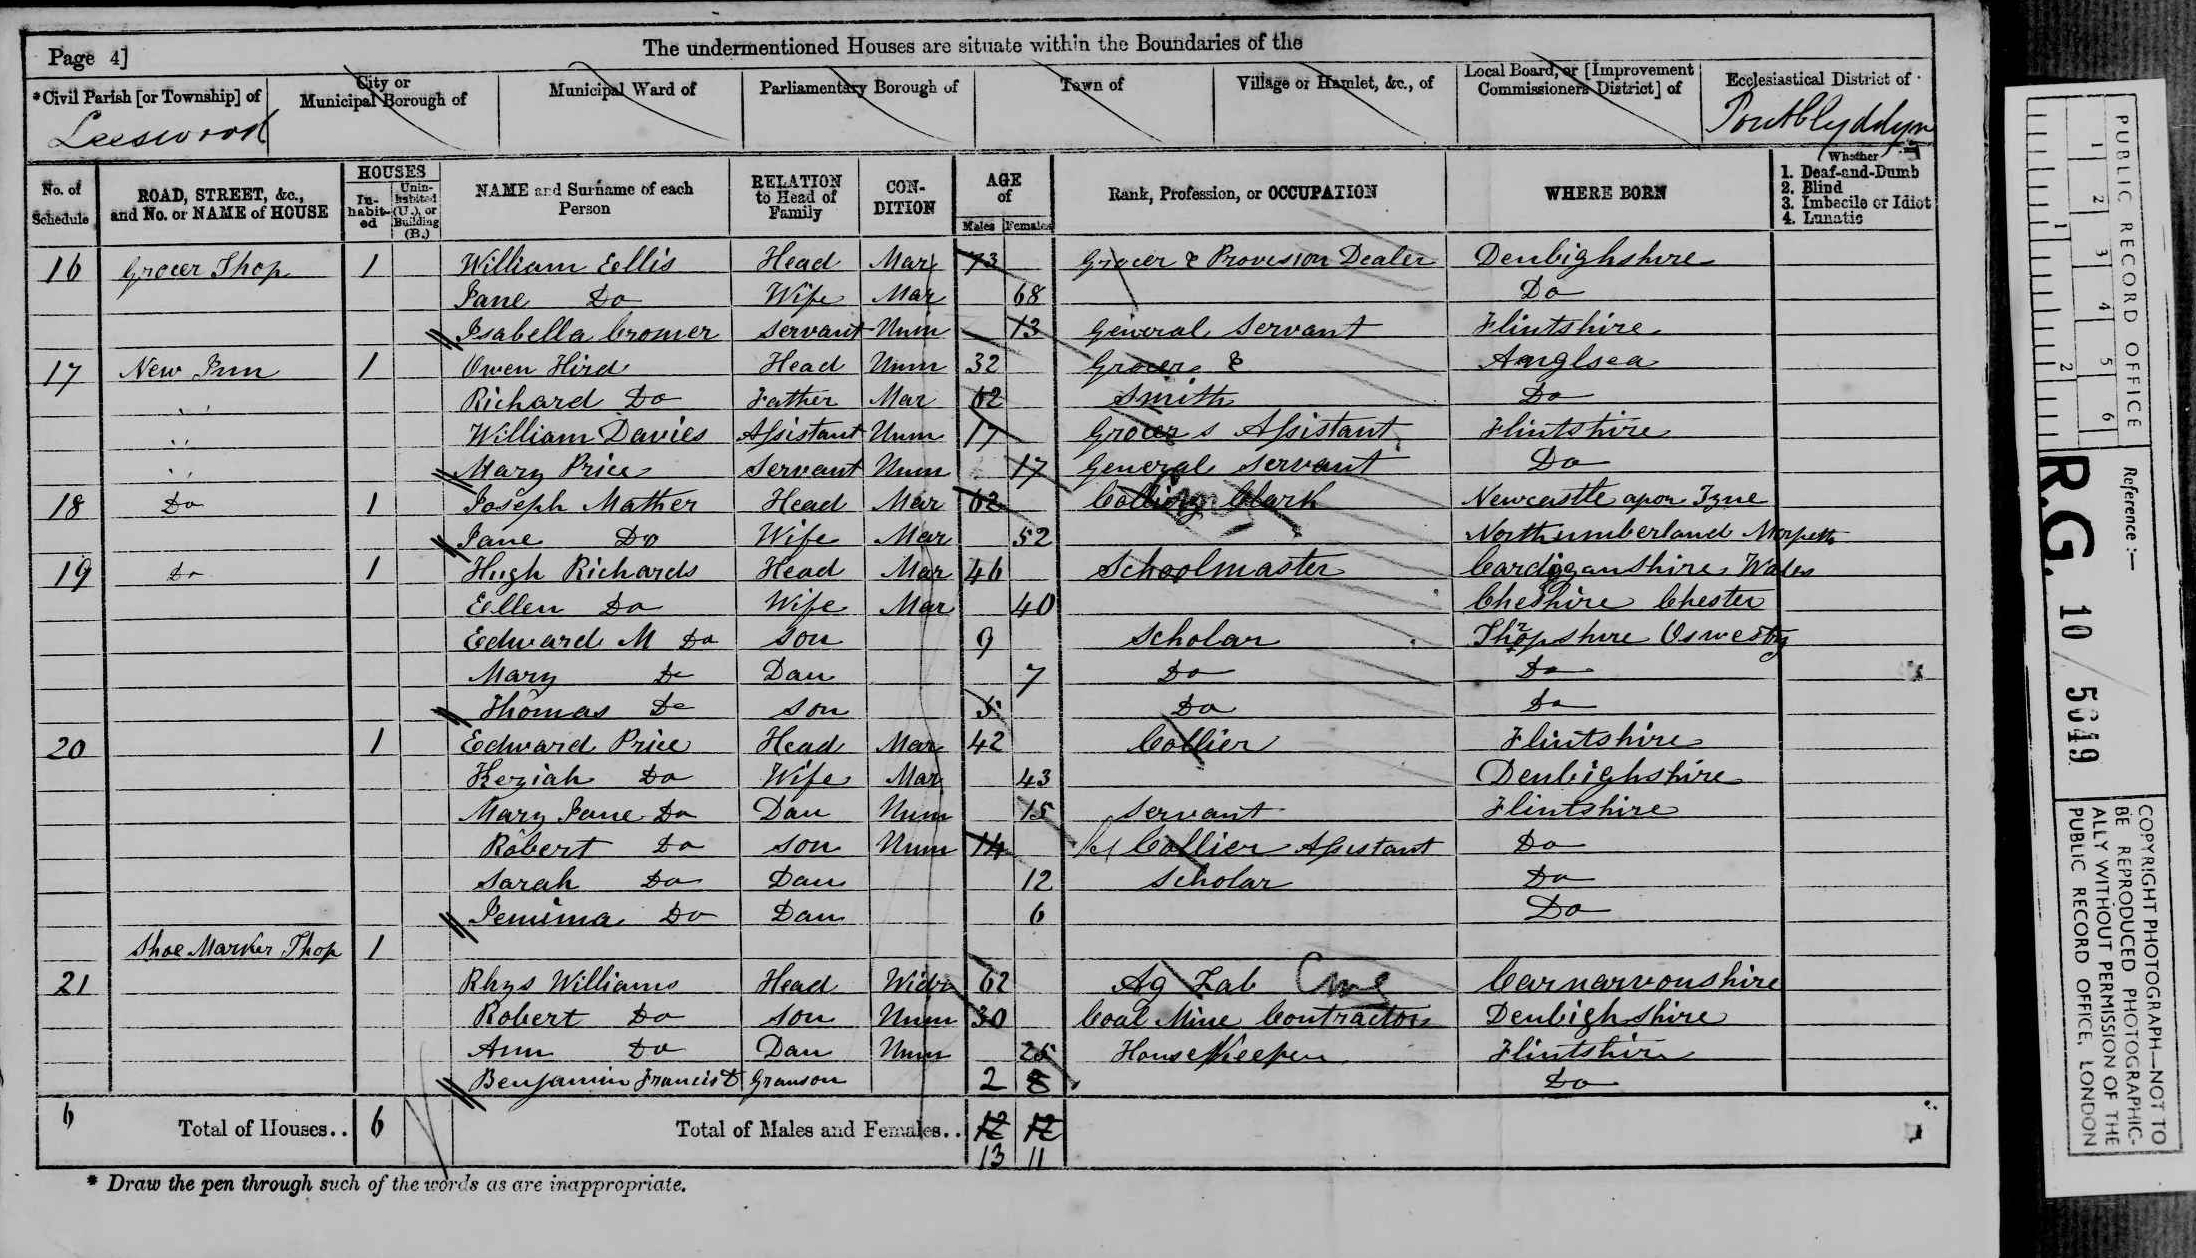 Page 4] The undermentioned Houses are situate within the Boundaries of the
*Civil Parish [or Township] of City or Municipal Borough of Municipal Ward of Parliamentary Borough of Town of Village or Hamlet, &c., of Local Board, or [Improvement Commissioners District] of Ecclesiastical District of
Leeswood Pontblyddyn
No. of Schedule ROAD, STREET, &c., and No. or NAME of HOUSE HOUSES In-habit-ed Unin-habited (U.), or Building (B.) NAME and Surname of each Person RELATION to Head of Family CON-DITION AGE of Males Females Rank, Profession, or OCCUPATION WHERE BORN Whether 1. Deaf-and-Dumb 2. Blind 3. Imbecile or Idiot 4. Lunatic
16 Grocer Shop 1 William Eellis Head Mar 73 Grocer & Provesion Dealer Denbighshire
Jane Do Wife Mar 68 Do
Isabella Cromer Servant Unm 13 General Servant Flintshire
17 New Inn 1 Owen Hird Head Unm 32 Grocer & Anglsea
Richard Do Father Mar 62 Smith Do
William Davies Assistant Unm 17 Grocers Assistant Flintshire
Mary Price Servant Unm 17 General Servant Do
18 Do 1 Joseph Mather Head Mar 62 Colliery Clark Newcastle apon Tyne
Jane Do Wife Mar 52 Northumberland Morpeth
19 Do 1 Hugh Richards Head Mar 46 Schoolmaster Cardiganshire Wales
Eellen Do Wife Mar 40 Cheshire Chester
Edward M Do Son 9 Scholar Shropshire Oswestry
Mary Do Dau 7 Do Do
Thomas Do Son 5 Do Do
20 1 Edward Price Head Mar 42 Collier Flintshire
Keziah Do Wife Mar 43 Denbighshire
Mary Jane Do Dau Unm 15 Servant Flintshire
Robert Do Son Unm 14 Collier Assistant Do
Sarah Do Dau 12 Scholar Do
Jemima Do Dau 6 Do
Shoe Marker Shop 1
21 Rhys Williams Head Widr 62 Ag Lab Carnarvonshire
Robert Do Son Unm 30 Coal Mine Contractor Denbighshire
Ann Do Dau Unm 25 HouseKeeper Flintshire
Benjamin Francis Do Granson 2 8 Do
6 Total of Houses.. 6 Total of Males and Females.. 12 12
13 11
* Draw the pen through such of the words as are inappropriate.
PUBLIC RECORD OFFICE
1 2 3 4 5 6
1 2
Reference :—
R.G. 10 / 5649
COPYRIGHT PHOTOGRAPH—NOT TO
BE REPRODUCED PHOTOGRAPHIC-
ALLY WITHOUT PERMISSION OF THE
PUBLIC RECORD OFFICE, LONDON